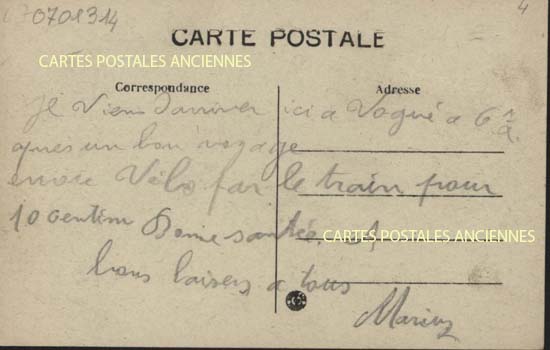 0701314
4
CARTE POSTALE
CARTES POSTALES ANCIENNES
Correspondance
Adresse
Je Viens d'arriver ici a Vogué a 6 h
apres un bon voyage
Vélo par le train pour
10 centim Bonne santée
CARTES POSTALES ANCIENNES
bons baisers a tous
Marius